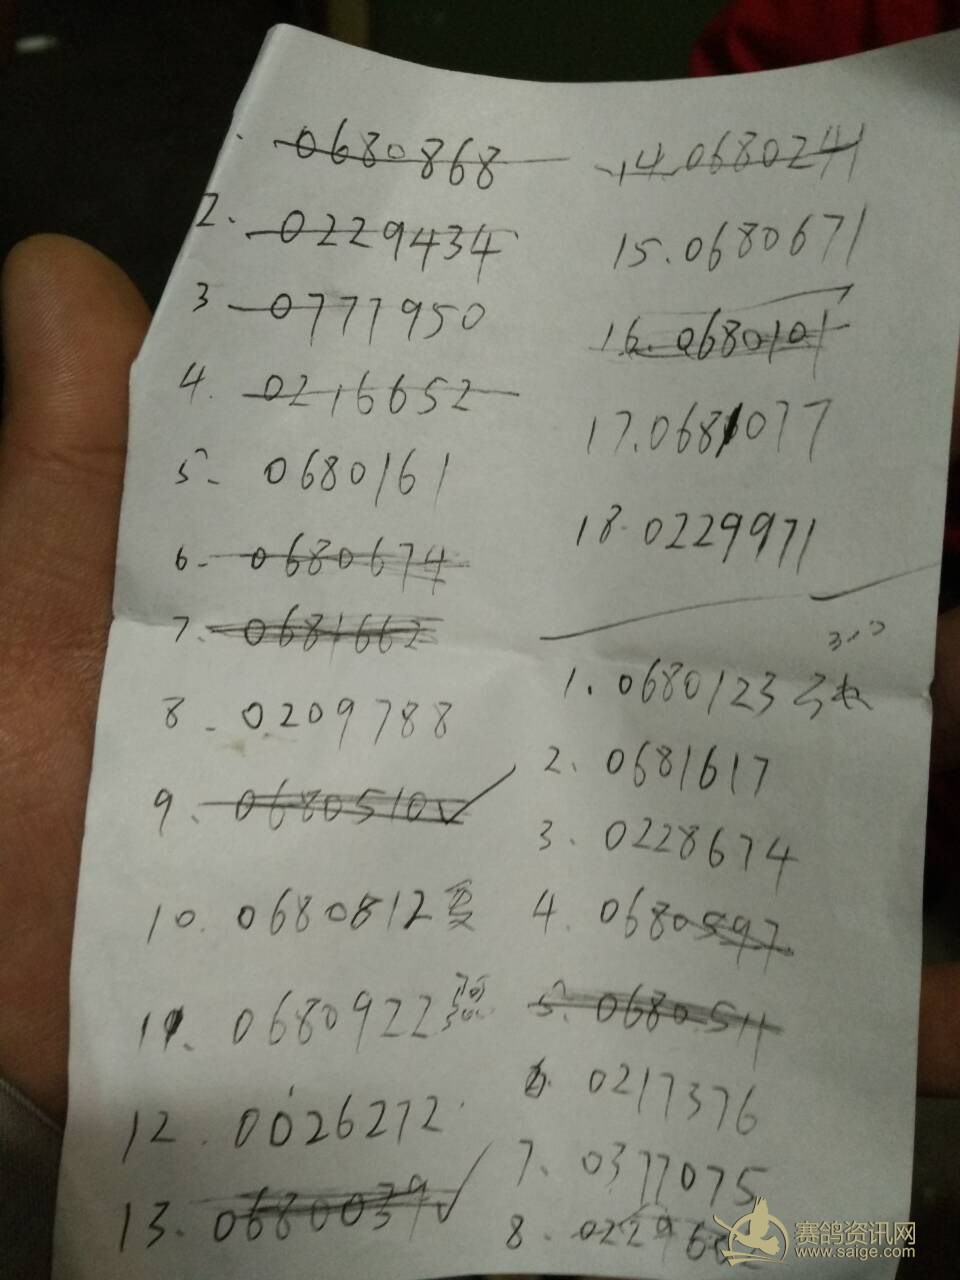 0680868
2. 0229434
3 0777950
4. 0216652
5. 0680161
6. 0680674
7. 0681662
8. 0209788
9. 0680510✓
10. 0680812夏
11. 0680922
12. 0026272
13. 0680039✓
14.0680241
15.0680671
16.0680101
17.0681077
18.0229971
1.0680123
2. 0681617
3. 0228674
4. 0680597
5. 0680511
6. 0217376
7. 0377075
8. 02296
赛鸽资讯网
www.saige.com